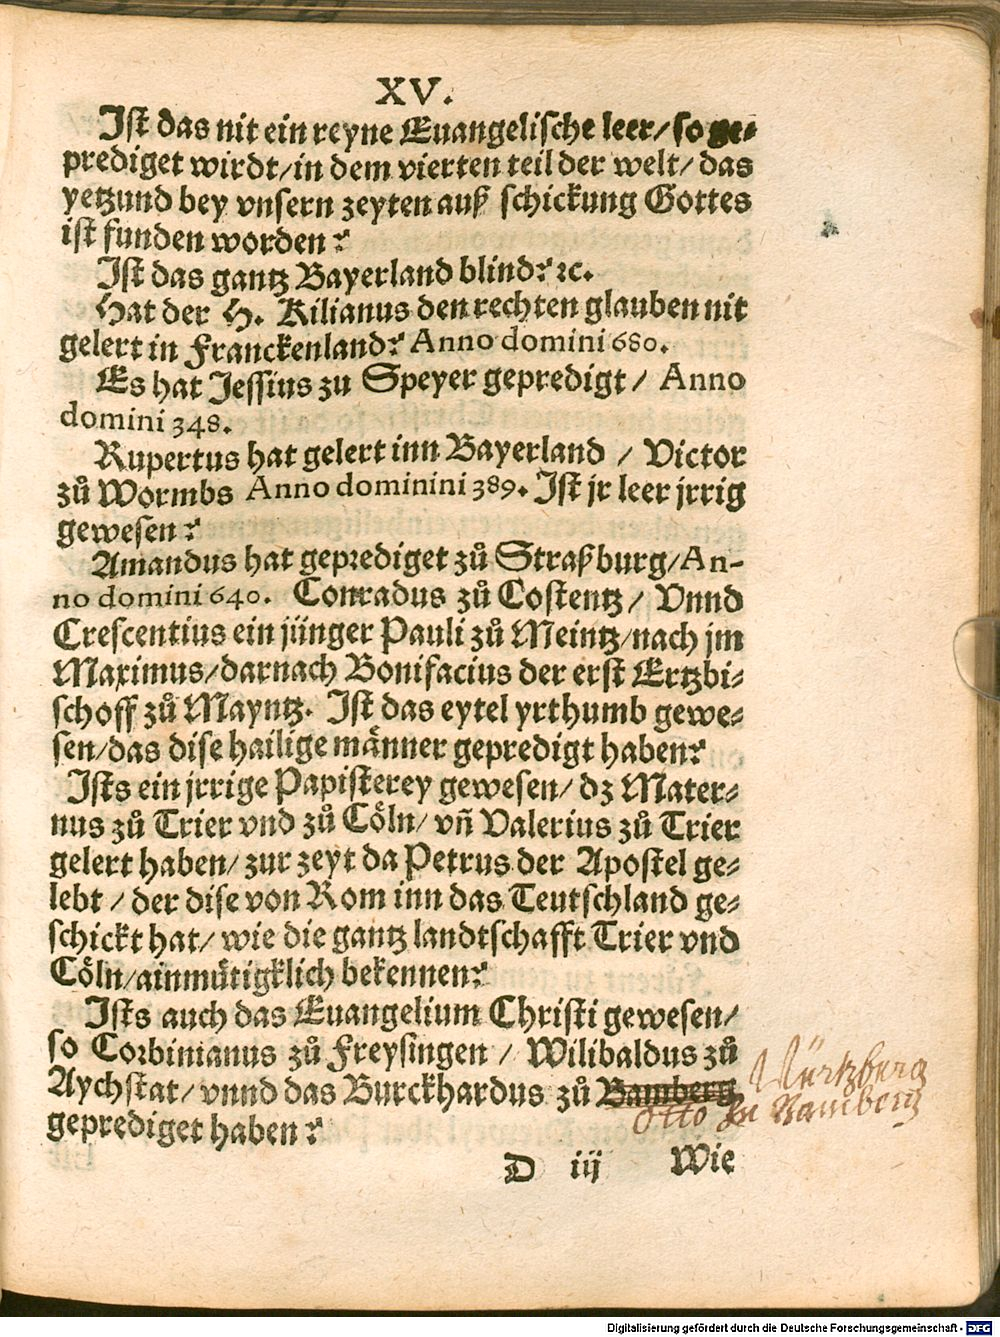 XV.
Ist das nit ein reyne Euangelische leer/ so ge⸗
prediget wirdt/in dem vierten teil der welt/ das
yetzund bey vnsern zeyten auß schickung Gottes
ist funden worden?
Ist das gantz Bayerland blind? ꝛc.
Hat der H. Kilianus den rechten glauben nit
gelert in Franckenland? Anno domini 680.
Es hat Jessius zu Speyer gepredigt / Anno
domini 348.
Rupertus hat gelert inn Bayerland / Victor
zů Wormbs Anno dominini 389. Ist jr leer jrrig
gewesen?
Amandus hat geprediget zů Straßburg/An-
no domini 640. Conradus zů Costentz/ Vnnd
Crescentius ein jünger Pauli zů Meintz/nach jm
Maximus/darnach Bonifacius der erst Ertzbi⸗
schoff zů Mayntz. Ist das eytel yrthumb gewe⸗
sen/das dise hailige männer gepredigt haben?
Ists ein jrrige Papisterey gewesen/ dz Mater⸗
nus zů Trier vnd zů Cöln/ vñ Valerius zů Trier
gelert haben/ zur zeyt da Petrus der Apostel ge⸗
lebt / der dise von Rom inn das Teutschland ge⸗
schickt hat/ wie die gantz landtschafft Trier vnd
Cöln/ainmütigklich bekennen?
Ists auch das Euangelium Christi gewesen/
so Corbinianus zů Freysingen / Wilibaldus zů
Aychstat/ vnnd das Burckhardus zů Bamberg Würtzberg
Otto zu Bamberg
geprediget haben?
D iij Wie
Digitalisierung gefördert durch die Deutsche Forschungsgemeinschaft - DFG